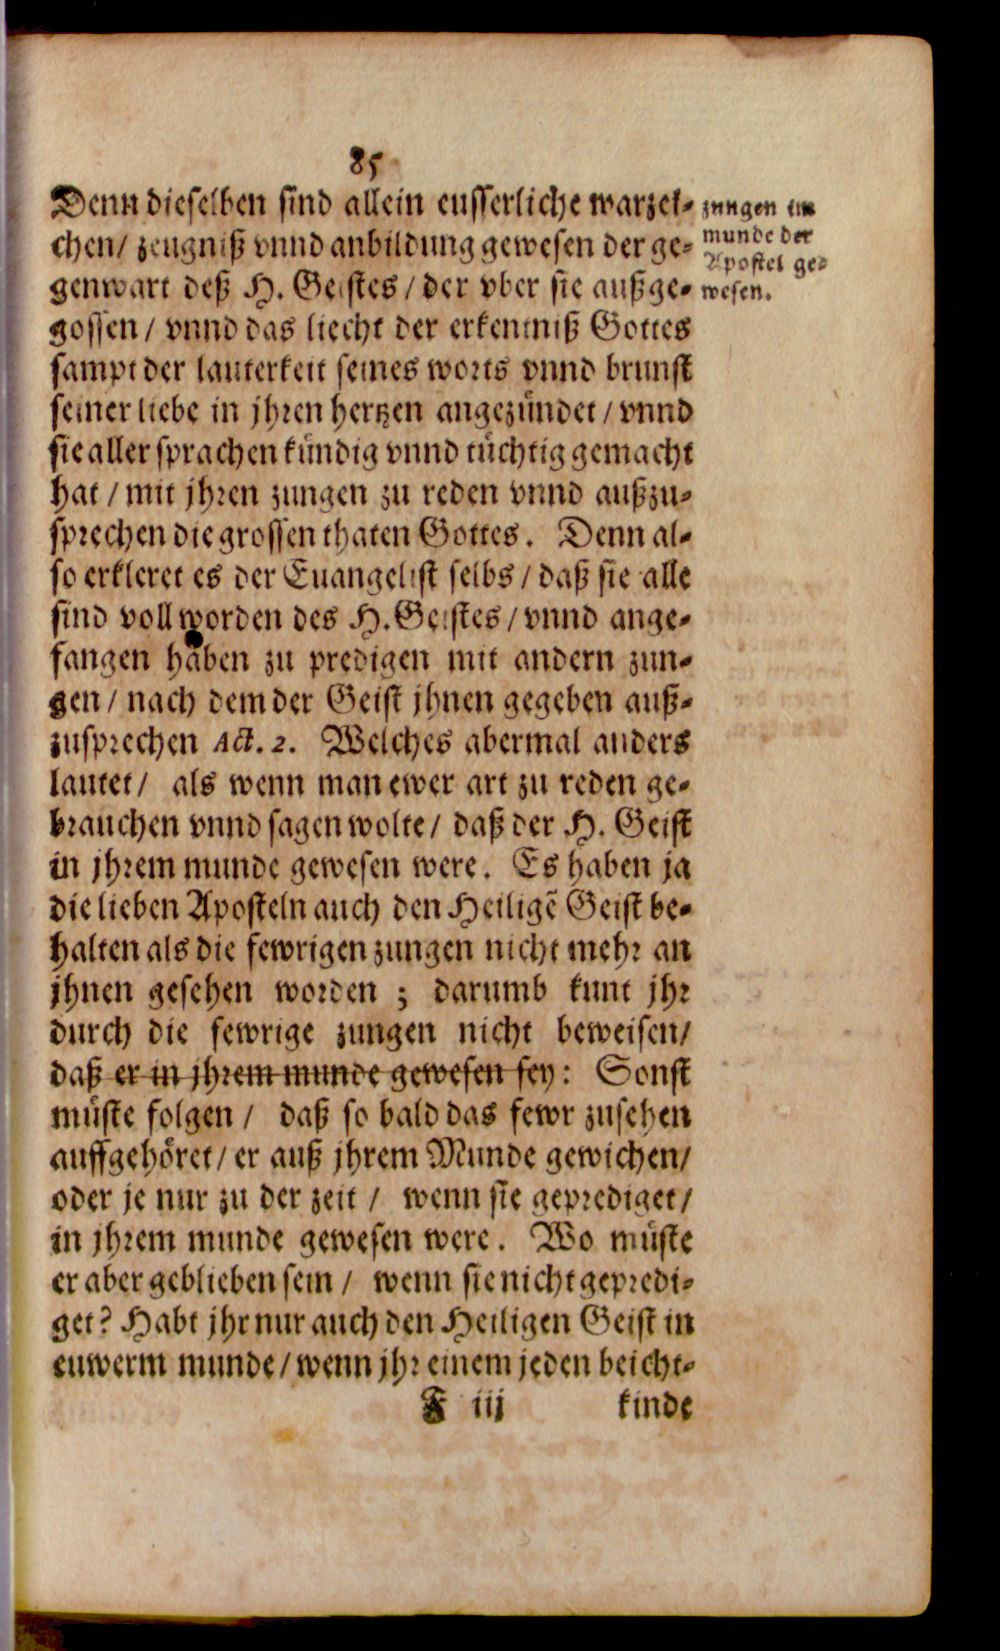 85
Denn dieselben sind allein eusserliche warzei-
chen/ zeugniß vnnd anbildung gewesen der ge-
genwart deß H. Geistes / der vber sie außge-
gossen / vnnd das liecht der erkentniß Gottes
sampt der lauterkeit seines worts vnnd brunst
seiner liebe in jhren hertzen angezündet / vnnd
sie aller sprachen kündig vnnd tüchtig gemacht
hat / mit jhren zungen zu reden vnnd außzu-
sprechen die grossen thaten Gottes. Denn al-
so erkleret es der Euangelist selbs / daß sie alle
sind voll worden des H. Geistes / vnnd ange-
fangen haben zu predigen mit andern zun-
gen / nach dem der Geist jhnen gegeben auß-
zusprechen Act. 2. Welches abermal anders
lautet / als wenn man ewer art zu reden ge-
brauchen vnnd sagen wolte / daß der H. Geist
in jhrem munde gewesen were. Es haben ja
die lieben Aposteln auch den Heiligẽ Geist be-
halten als die fewrigen zungen nicht mehr an
jhnen gesehen worden ; darumb kunt jhr
durch die fewrige zungen nicht beweisen/
daß er in jhrem munde gewesen sey: Sonst
müste folgen / daß so bald das fewr zusehen
auffgehöret / er auß jhrem Munde gewichen/
oder je nur zu der zeit / wenn sie geprediget/
in jhrem munde gewesen were. Wo müste
er aber geblieben sein / wenn sie nicht gepredi-
get? Habt jhr nur auch den Heiligen Geist in
euwerm munde / wenn jhr einem jeden beicht-
F iij kinde
zungen im
munde der
Apostel ge-
wesen.